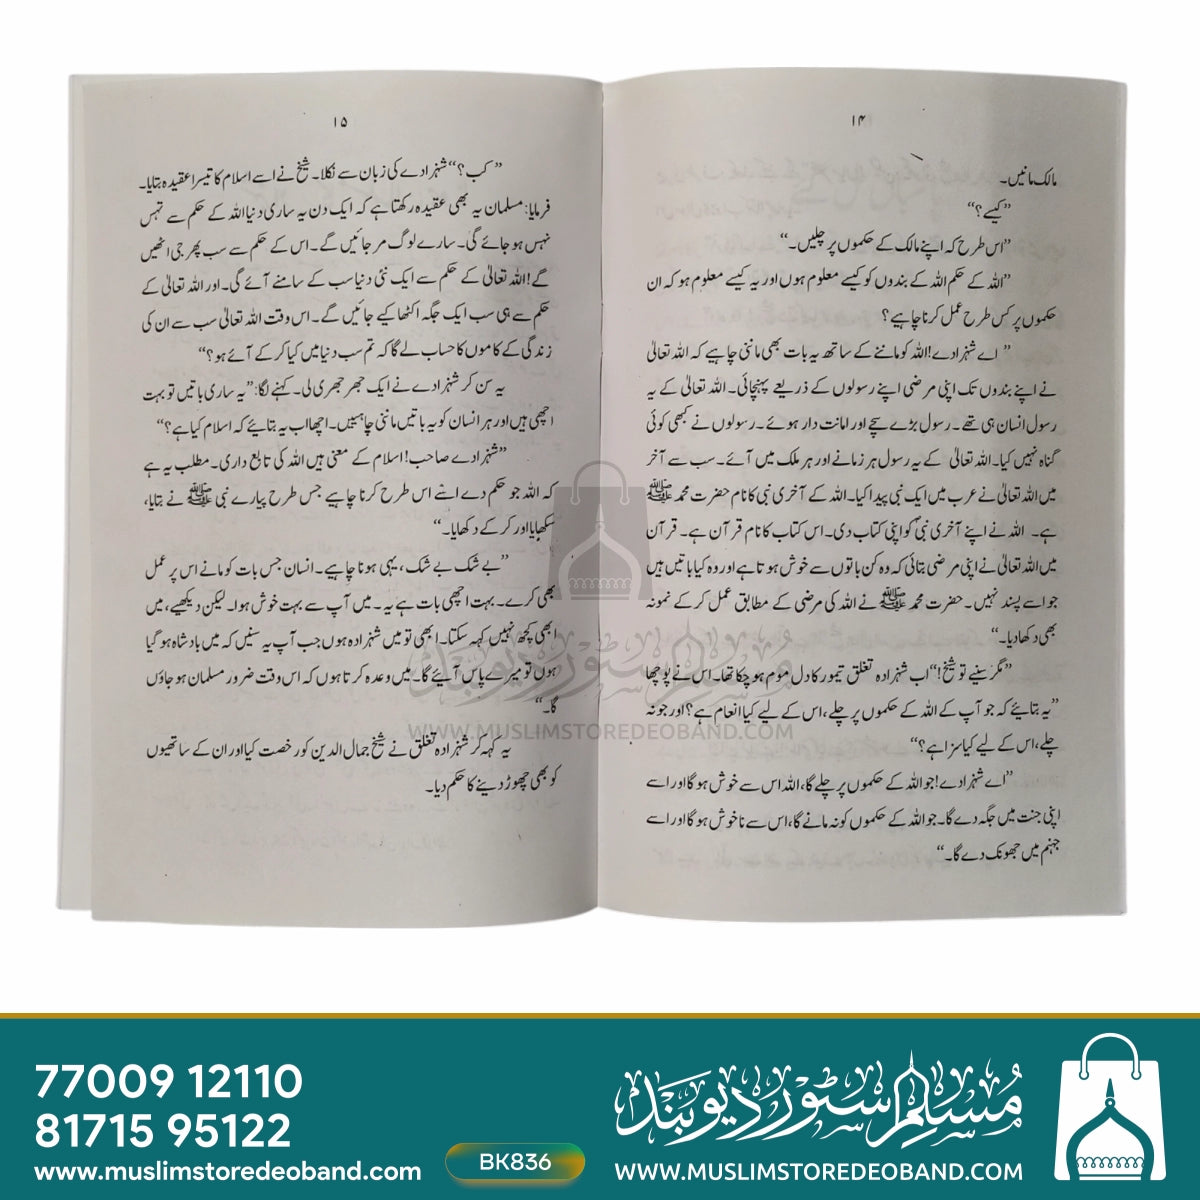 ۱۴
مالک مانیں۔
”کیسے؟“
”اس طرح کہ اپنے مالک کے حکموں پر چلیں۔“
”اللہ کے حکم اللہ کے بندوں کو کیسے معلوم ہوں اور یہ کیسے معلوم ہو کہ ان
حکموں پر کس طرح عمل کرنا چاہیے؟
”اے شہزادے! اللہ کو ماننے کے ساتھ یہ بات بھی ماننی چاہیے کہ اللہ تعالیٰ
نے اپنے بندوں تک اپنی مرضی اپنے رسولوں کے ذریعے پہنچائی۔ اللہ تعالیٰ کے یہ
رسول انسان ہی تھے۔ رسول بڑے سچے اور امانت دار ہوئے۔ رسولوں نے کبھی کوئی
گناہ نہیں کیا۔ اللہ تعالیٰ کے یہ رسول ہر زمانے اور ہر ملک میں آئے۔ سب سے آخر
میں اللہ تعالیٰ نے عرب میں ایک نبی پیدا کیا۔ اللہ کے آخری نبی کا نام حضرت محمد ﷺ
ہے۔ اللہ نے اپنے آخری نبیؐ کو اپنی کتاب دی۔ اس کتاب کا نام قرآن ہے۔ قرآن
میں اللہ تعالیٰ نے اپنی مرضی بتائی کہ وہ کن باتوں سے خوش ہوتا ہے اور وہ کیا باتیں ہیں
جو اسے پسند نہیں۔ حضرت محمد ﷺ نے اللہ کی مرضی کے مطابق عمل کر کے نمونہ
بھی دکھا دیا۔“
”مگر سنیے تو شیخ!“ اب شہزادہ تغلق تیمور کا دل موم ہو چکا تھا۔ اس نے پوچھا
”یہ بتائیے کہ جو آپ کے اللہ کے حکموں پر چلے، اس کے لیے کیا انعام ہے؟ اور جو نہ
چلے، اس کے لیے کیا سزا ہے؟“
”اے شہزادے! جو اللہ کے حکموں پر چلے گا، اللہ اس سے خوش ہو گا اور اسے
اپنی جنت میں جگہ دے گا۔ جو اللہ کے حکموں کو نہ مانے گا، اس سے ناخوش ہو گا اور اسے
جہنم میں جھونک دے گا۔“
۱۵
”کب؟“ شہزادے کی زبان سے نکلا۔ شیخ نے اسے اسلام کا تیسرا عقیدہ بتایا۔
فرمایا: مسلمان یہ بھی عقیدہ رکھتا ہے کہ ایک دن یہ ساری دنیا اللہ کے حکم سے تہس
نہس ہو جائے گی۔ سارے لوگ مر جائیں گے۔ اس کے حکم سے سب پھر جی اٹھیں
گے! اللہ تعالیٰ کے حکم سے ایک نئی دنیا سب کے سامنے آئے گی۔ اور اللہ تعالیٰ کے
حکم سے ہی سب ایک جگہ اکٹھا کیے جائیں گے۔ اس وقت اللہ تعالیٰ سب سے ان کی
زندگی کے کاموں کا حساب لے گا کہ تم سب دنیا میں کیا کر کے آئے ہو؟“
یہ سن کر شہزادے نے ایک جھر جھری لی۔ کہنے لگا: ”یہ ساری باتیں تو بہت
اچھی ہیں اور ہر انسان کو یہ باتیں ماننی چاہییں۔ اچھا اب یہ بتائیے کہ اسلام کیا ہے؟“
”شہزادے صاحب! اسلام کے معنی ہیں اللہ کی تابع داری۔ مطلب یہ ہے
کہ اللہ جو حکم دے اسے اس طرح کرنا چاہیے جس طرح پیارے نبی ﷺ نے بتایا،
سکھایا اور کر کے دکھایا۔“
”بے شک بے شک، یہی ہونا چاہیے۔ انسان جس بات کو مانے اس پر عمل
بھی کرے۔ بہت اچھی بات ہے یہ۔ میں آپ سے بہت خوش ہوا۔ لیکن دیکھیے، میں
ابھی کچھ نہیں کہہ سکتا۔ ابھی تو میں شہزادہ ہوں جب آپ یہ سنیں کہ میں بادشاہ ہو گیا
ہوں تو میرے پاس آئیے گا۔ میں وعدہ کرتا ہوں کہ اس وقت ضرور مسلمان ہو جاؤں
گا۔“
یہ کہہ کر شہزادہ تغلق نے شیخ جمال الدین کو رخصت کیا اور ان کے ساتھیوں
کو بھی چھوڑ دینے کا حکم دیا۔
مسلم سٹور دیوبند
WWW.MUSLIMSTOREDEOBAND.COM
77009 12110
81715 95122
www.muslimstoredeoband.com
BK836
مسلم سٹور دیوبند
WWW.MUSLIMSTOREDEOBAND.COM